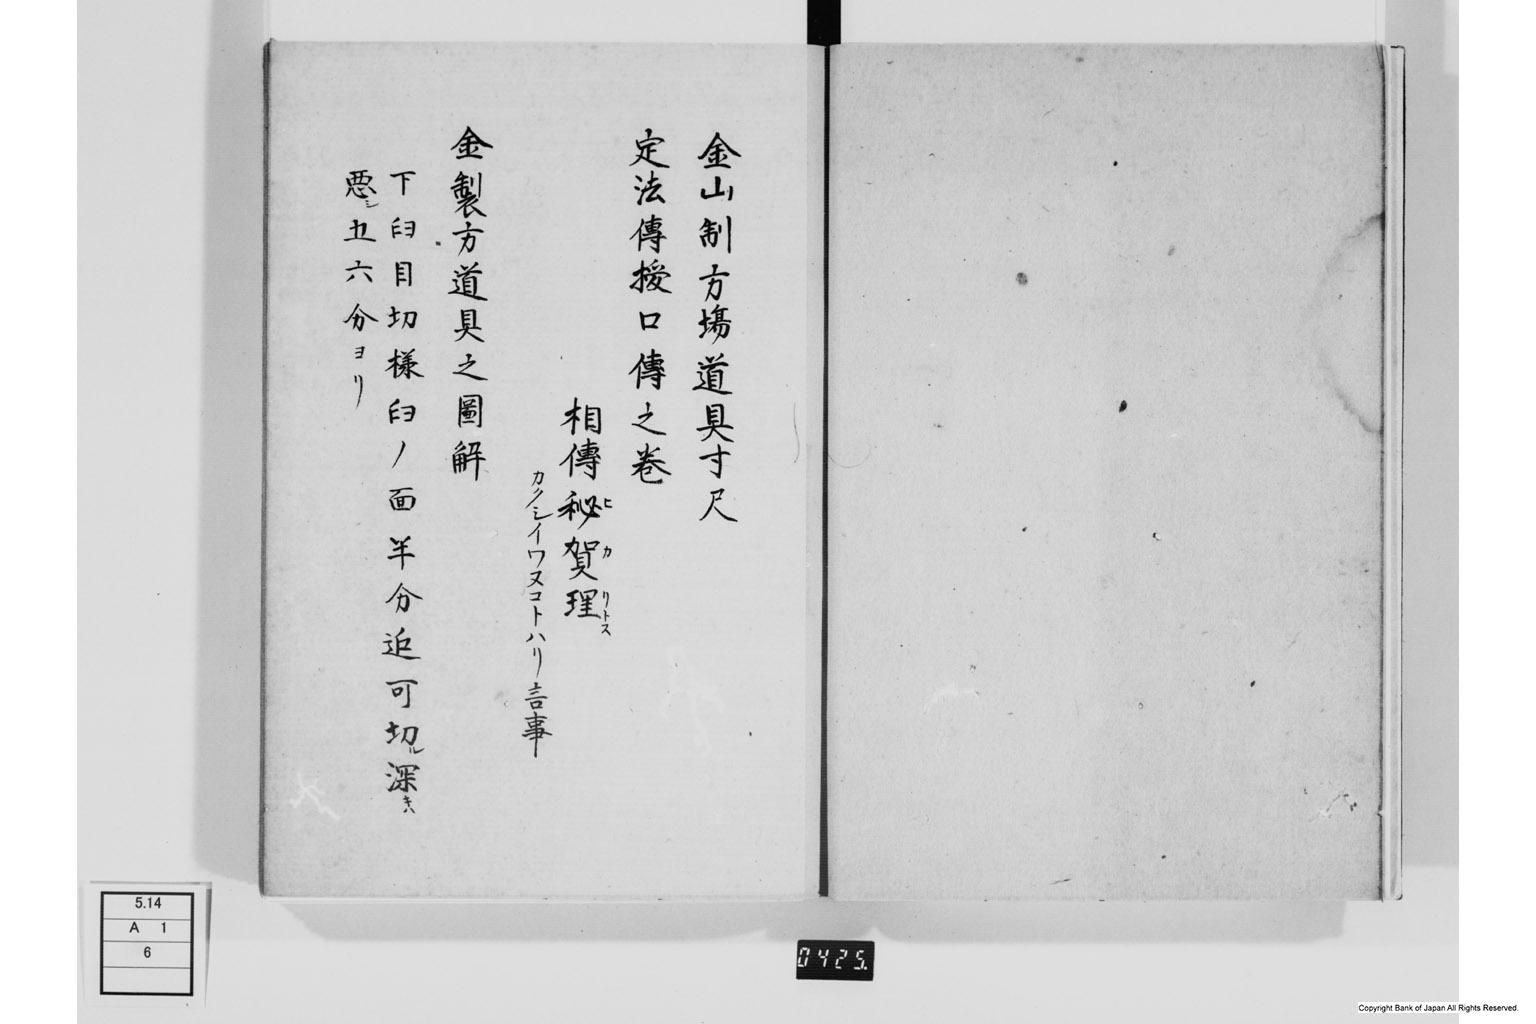 金山制方塲道具寸尺
定法傳授口傳之巻
相傳秘賀理
ヒカリトス
カクシイワヌコトハリ言事
金製方道具之圖解
下臼目切様臼ノ面半分近可切ル深キハ
悪シ五六分ヨリ
5.14
A 1
6
0425
Copyright Bank of Japan All Rights Reserved.